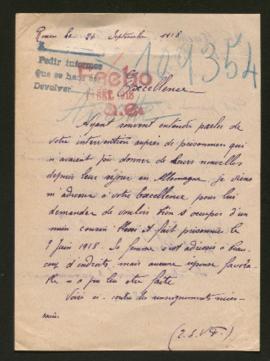 Rouen le 24 Septembre 1918
A
Pedir informes
que se hace se
Devolver.
Hecho
SET. 1918
109354
Excellence
Ayant souvent entendu parler de
votre intervention auprès de prisonniers qui
n'avaient pu donner de leurs nouvelles
depuis leur séjour en Allemagne je viens
m'adresser à votre Excellence pour lui
demander de vouloir bien s'occuper d'un
mien cousin fait prisonnier le
7 Juin 1918. Sa femme s'est adressée à beau
coup d'endroits, mais aucune réponse favora
ble n'a pu lui être faite
Voici ci-contre les renseignements néces-
saires.
(T.S.V.P.)